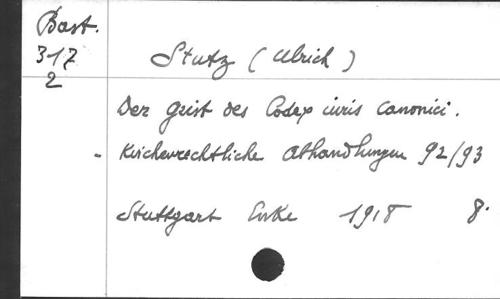 Bast.
317
2
Stutz (Ulrich)
Der Geist des Codex iuris canonici.
- Kirchenrechtliche Abhandlungen 92/93
Stuttgart Enke 1918 8.